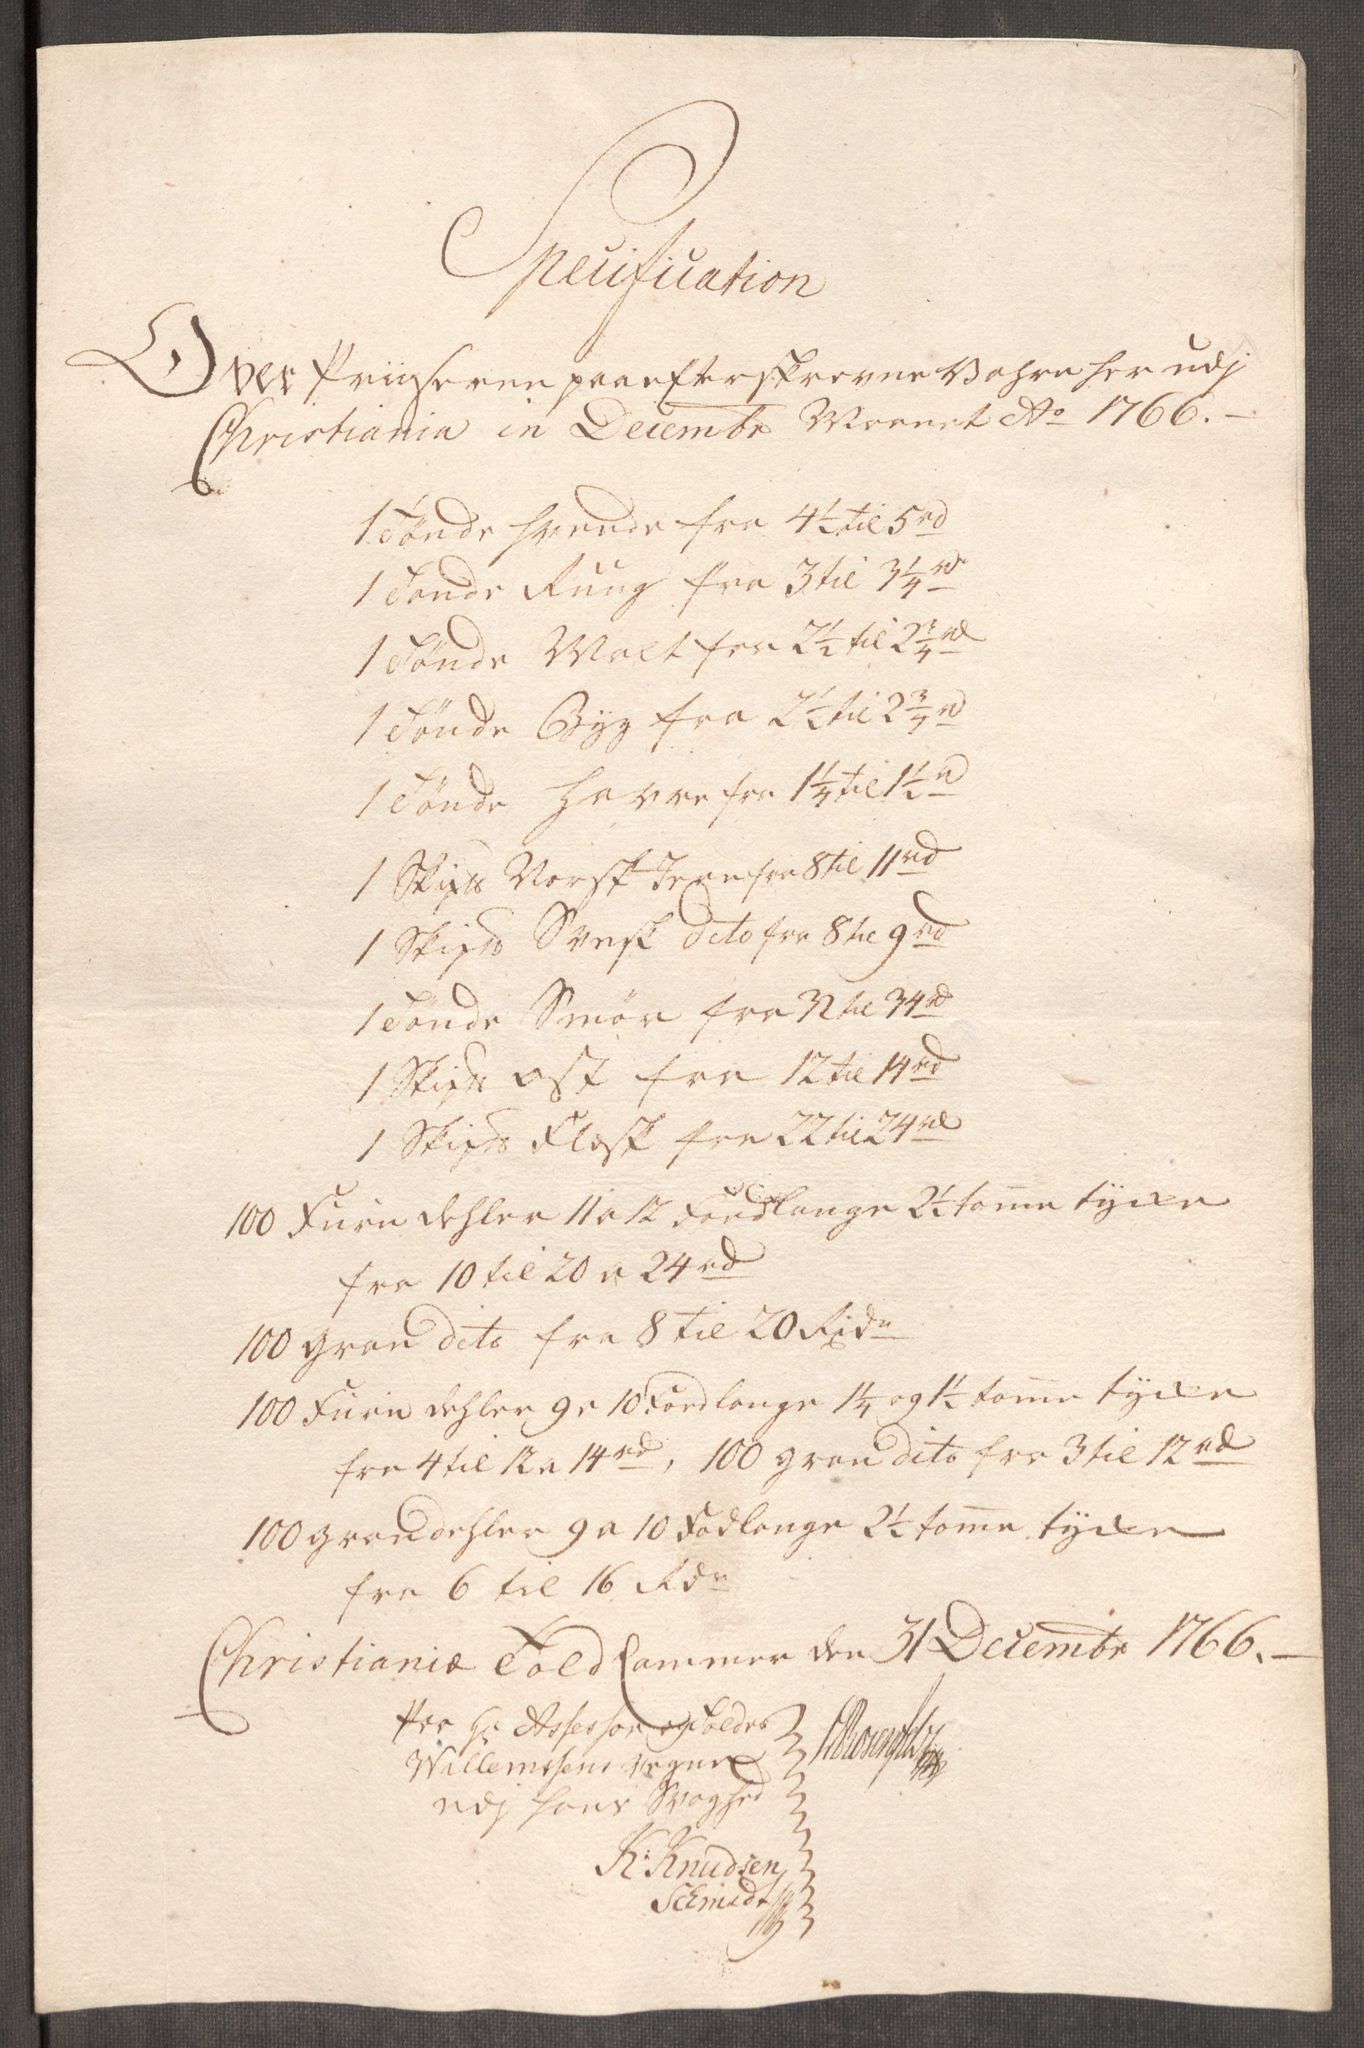 Specification
Over Priiserne paa efterskrevne Vahre her udj
Christiania in Decembr Maanet Ao 1766.
1 Tönde hveede fra 4 1/2 til 5 rd
1 Tönde Ruug fra 3 til 3 1/4 rdr
1 Tönde Malt fra 2 1/2 til 2 3/4 rd
1 Tönde Byg fra 2 1/2 til 2 3/4 rd
1 Tönde Havre fra 1 1/4 til 1 1/2 rd
1 Skipd Norsk Jern fra 8 til 11 rd
1 Skipd Svensk dito fra 8 til 9 rd
1 Tönde Smör fra 32 til 34 rd
1 Skipd Ost fra 12 til 14 rd
1 Skipd Flesk fra 22 til 24 rd
100 Furu dehler 11 a 12 Foed lange 2 1/2 tomme tycke
fra 10 til 20 a 24 rd
100 gran dito fra 8 til 20 Rixdr
100 Furu dehler 9 a 10 Foed lange 1 1/4 og 1 1/2 tomme tycke
fra 4 til 12 a 14 rd, 100 gran dito fra 3 til 12 rd
100 gran dehler 9 a 10 Fod lange 2 1/2 tomme tycke
fra 6 til 16 Rdr
Christianiæ Told Cammer den 31 Decembr 1766.
Paa Hr Assessor og Tolder
Willemsens vegne
udj hans Svaghed
K: Knudsen
Schmidt